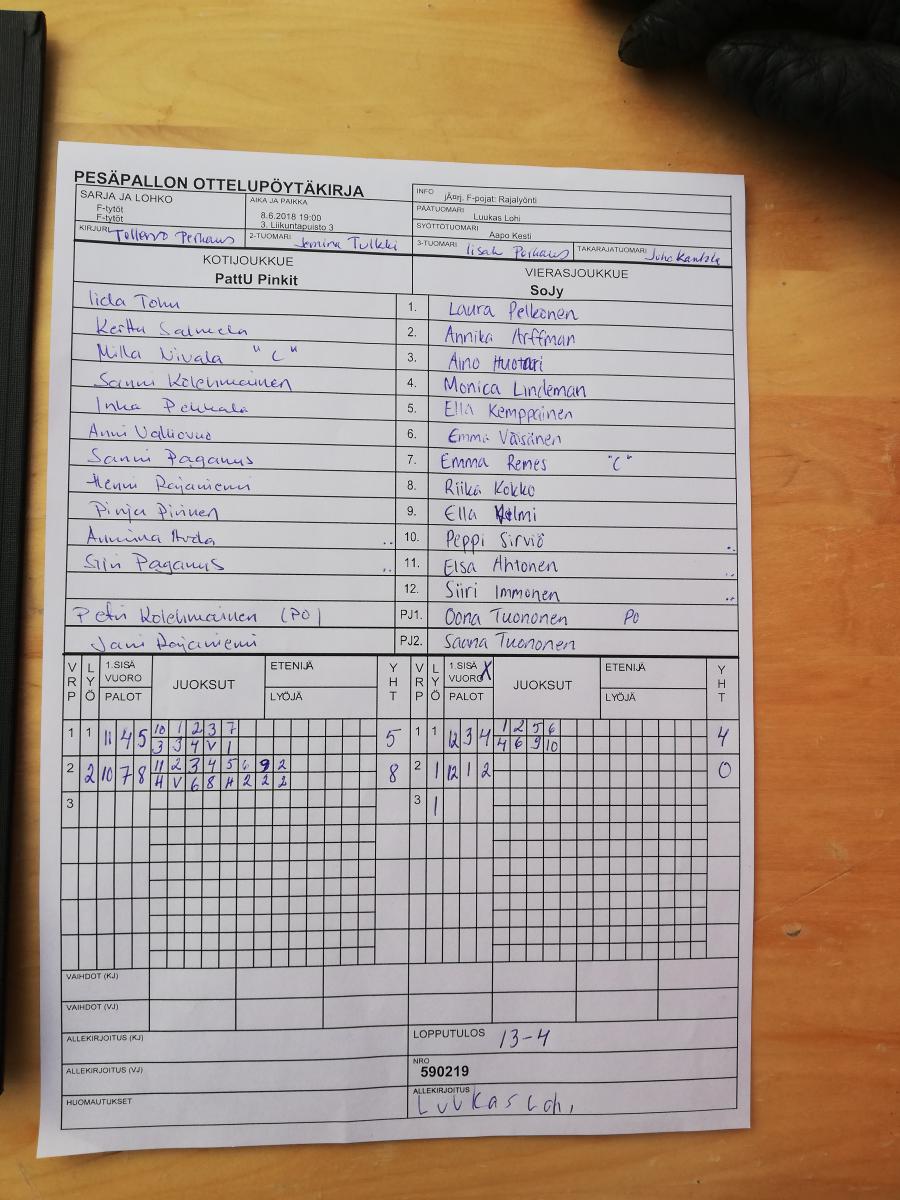 PESÄPALLON OTTELUPÖYTÄKIRJA
SARJA JA LOHKO
F-tytöt
F-tytöt
AIKA JA PAIKKA
8.6.2018 19:00
3. Liikuntapuisto 3
INFO jÄrj. F-pojat: Rajalyönti
PÄÄTUOMARI Luukas Lohi
SYÖTTÖTUOMARI Aapo Kesti
KIRJURI Tellervo Perhaus
2-TUOMARI Jemina Tulkki
3-TUOMARI Iisak Porhaus
TAKARAJATUOMARI Juho
KOTIJOUKKUE
PattU Pinkit
VIERASJOUKKUE
SoJy
Iida Tohu 1. Laura Pelkonen
Kerttu Salmela 2. Annika Arffman
Milla Nivala "C" 3. Aino Huotari
Sanni Kolehmainen 4. Monica Lindeman
Inka Pekkala 5. Ella Kemppainen
Anni Valliovuo 6. Emma Väisänen
Sanni Paganus 7. Emma Remes "C"
Henni Rajaniemi 8. Riika Kokko
Pinja Pirinen 9. Ella Halmi
Anniina .. 10. Peppi Sirviö ..
Siiri Paganus .. 11. Elsa Ahtonen ..
12. Siiri Immonen ..
Petri Kolehmainen (PO) PJ1. Oona Tuononen PO
Jani Rajaniemi PJ2. Saana Tuononen
VRP LYÖ 1.SISÄ VUORO PALOT JUOKSUT ETENIJÄ LYÖJÄ YHT
VRP LYÖ 1.SISÄ VUORO X PALOT JUOKSUT ETENIJÄ LYÖJÄ YHT
1 1 11 4 5 10 1 2 3 7 5
3 3 4 V 1
1 1 12 3 4 1 2 5 6 4
4 6 9 10
2 2 10 7 8 11 2 3 4 5 6 9 2 8
4 V 6 8 H 2 2 2
2 1 12 1 2 0
3
3 1
VAIHDOT (KJ)
VAIHDOT (VJ)
ALLEKIRJOITUS (KJ)
LOPPUTULOS 13-4
ALLEKIRJOITUS (VJ)
NRO
590219
HUOMAUTUKSET
ALLEKIRJOITUS
Luukas Lohi